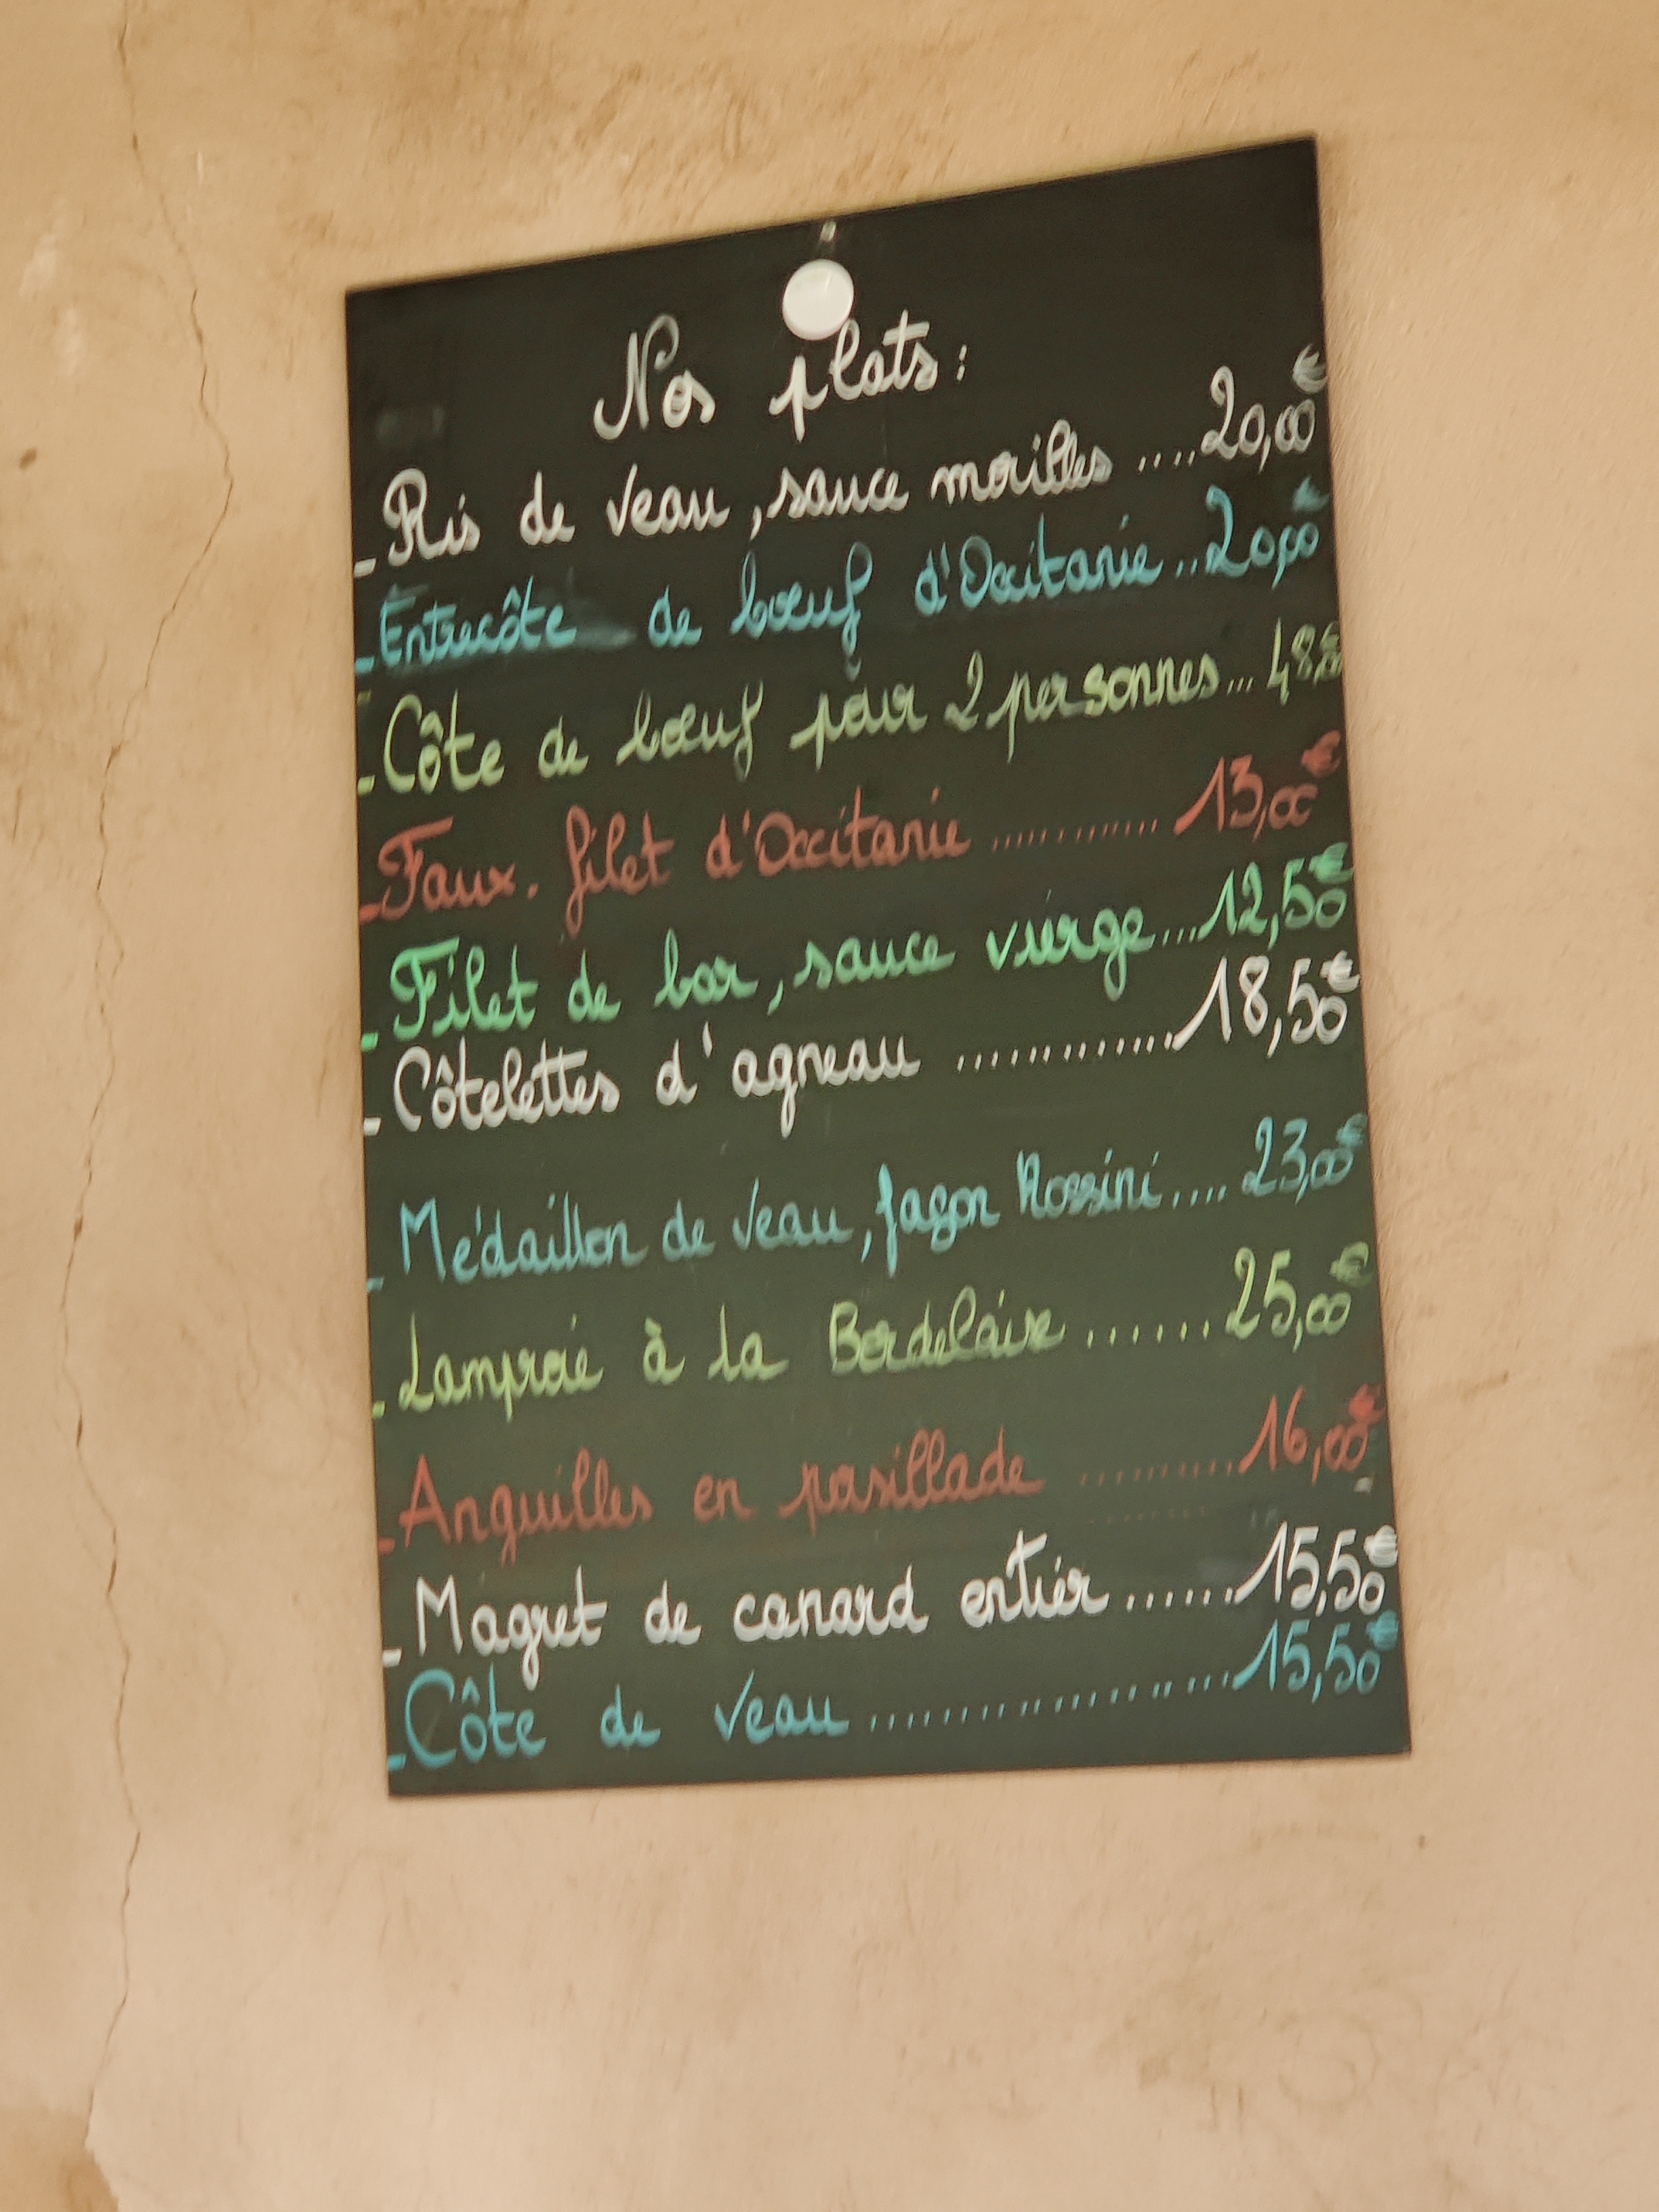 Nos plats:
- Ris de veau, sauce morilles ....20,00€
- Entrecôte de bœuf d'Occitanie ..20,00€
- Côte de bœuf pour 2 personnes... 48,00€
- Faux. filet d'Occitanie ............. 13,00€
- Filet de bar, sauce vierge...12,50€
- Côtelettes d'agneau .............18,50€
- Médaillon de veau, façon Rossini.... 23,00€
- Lamproie à la Bordelaise ......25,00€
- Anguilles en persillade ..........16,00€
- Magret de canard entier ......15,50€
- Côte de veau ....................15,50€